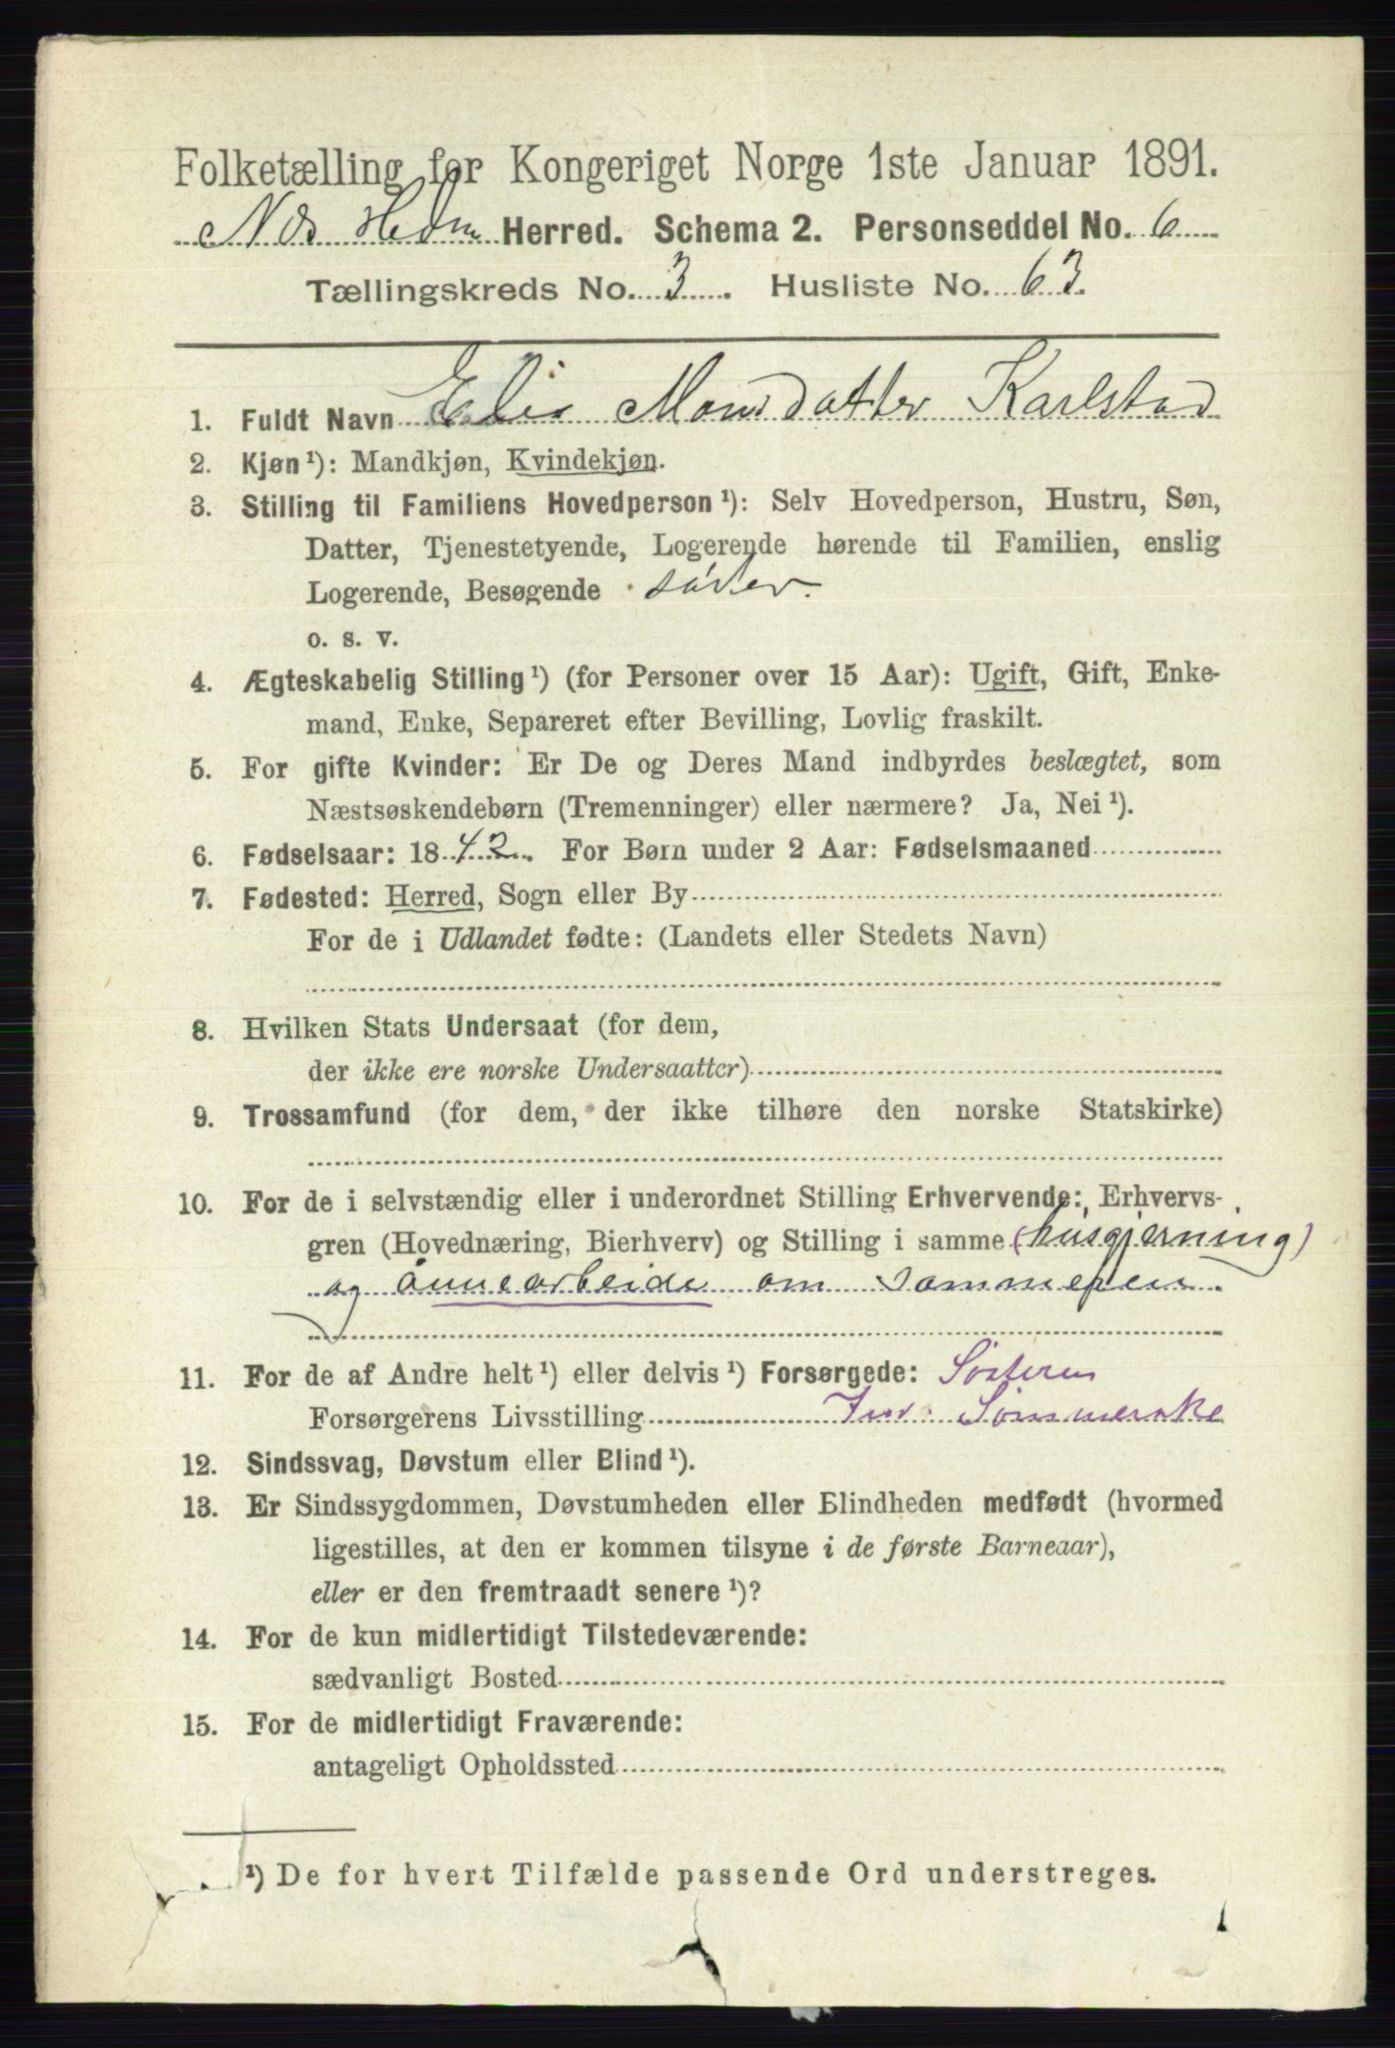 Folketælling for Kongeriget Norge 1ste Januar 1891.
Nes Hedm Herred. Schema 2. Personseddel No. 6
Tællingskreds No. 3. Husliste No. 63.
1. Fuldt Navn Monsdatter Karlstad
2. Kjøn¹): Mandkjøn, Kvindekjøn.
3. Stilling til Familiens Hovedperson¹): Selv Hovedperson, Hustru, Søn,
Datter, Tjenestetyende, Logerende hørende til Familien, enslig
Logerende, Besøgende søster.
o. s. v.
4. Ægteskabelig Stilling¹) (for Personer over 15 Aar): Ugift, Gift, Enke-
mand, Enke, Separeret efter Bevilling, Lovlig fraskilt.
5. For gifte Kvinder: Er De og Deres Mand indbyrdes beslægtet, som
Næstsøskendebørn (Tremenninger) eller nærmere? Ja, Nei¹).
6. Fødselsaar: 1842. For Børn under 2 Aar: Fødselsmaaned
7. Fødested: Herred, Sogn eller By
For de i Udlandet fødte: (Landets eller Stedets Navn)
8. Hvilken Stats Undersaat (for dem,
der ikke ere norske Undersaatter)
9. Trossamfund (for dem, der ikke tilhøre den norske Statskirke)
10. For de i selvstændig eller i underordnet Stilling Erhvervende: Erhvervs-
gren (Hovednæring, Bierhverv) og Stilling i samme (husgjerning)
og ånnearbeide om sommeren.
11. For de af Andre helt¹) eller delvis¹) Forsørgede: Søsteren
Forsørgerens Livsstilling
12. Sindssvag, Døvstum eller Blind¹).
13. Er Sindssygdommen, Døvstumheden eller Blindheden medfødt (hvormed
ligestilles, at den er kommen tilsyne i de første Barneaar),
eller er den fremtraadt senere¹)?
14. For de kun midlertidigt Tilstedeværende:
sædvanligt Bosted
15. For de midlertidigt Fraværende:
antageligt Opholdssted
¹) De for hvert Tilfælde passende Ord understreges.